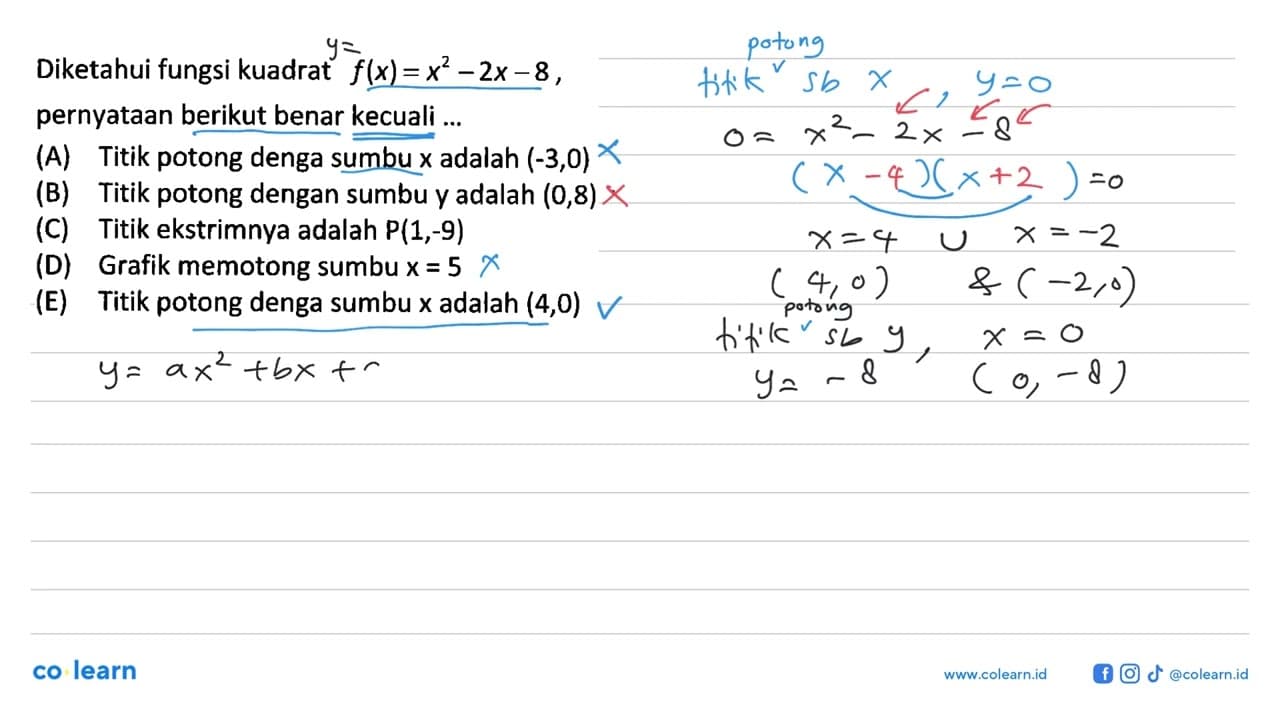 y=
Diketahui fungsi kuadrat f(x) = x² – 2x – 8 ,
pernyataan berikut benar kecuali ...
(A) Titik potong denga sumbu x adalah (-3,0) ×
(B) Titik potong dengan sumbu y adalah (0,8) ×
(C) Titik ekstrimnya adalah P(1,-9)
(D) Grafik memotong sumbu x = 5 ×
(E) Titik potong denga sumbu x adalah (4,0) ✓
y = ax² + bx +
potong
titik ✓ sb x , y = 0
0 = x² – 2x – 8
(x – 4)(x + 2) = 0
x = 4 ∪ x = –2
(4,0) & (–2,0)
potong
titik ✓ sb y, x = 0
y = – 8 (0, –8)
co learn
www.colearn.id @colearn.id